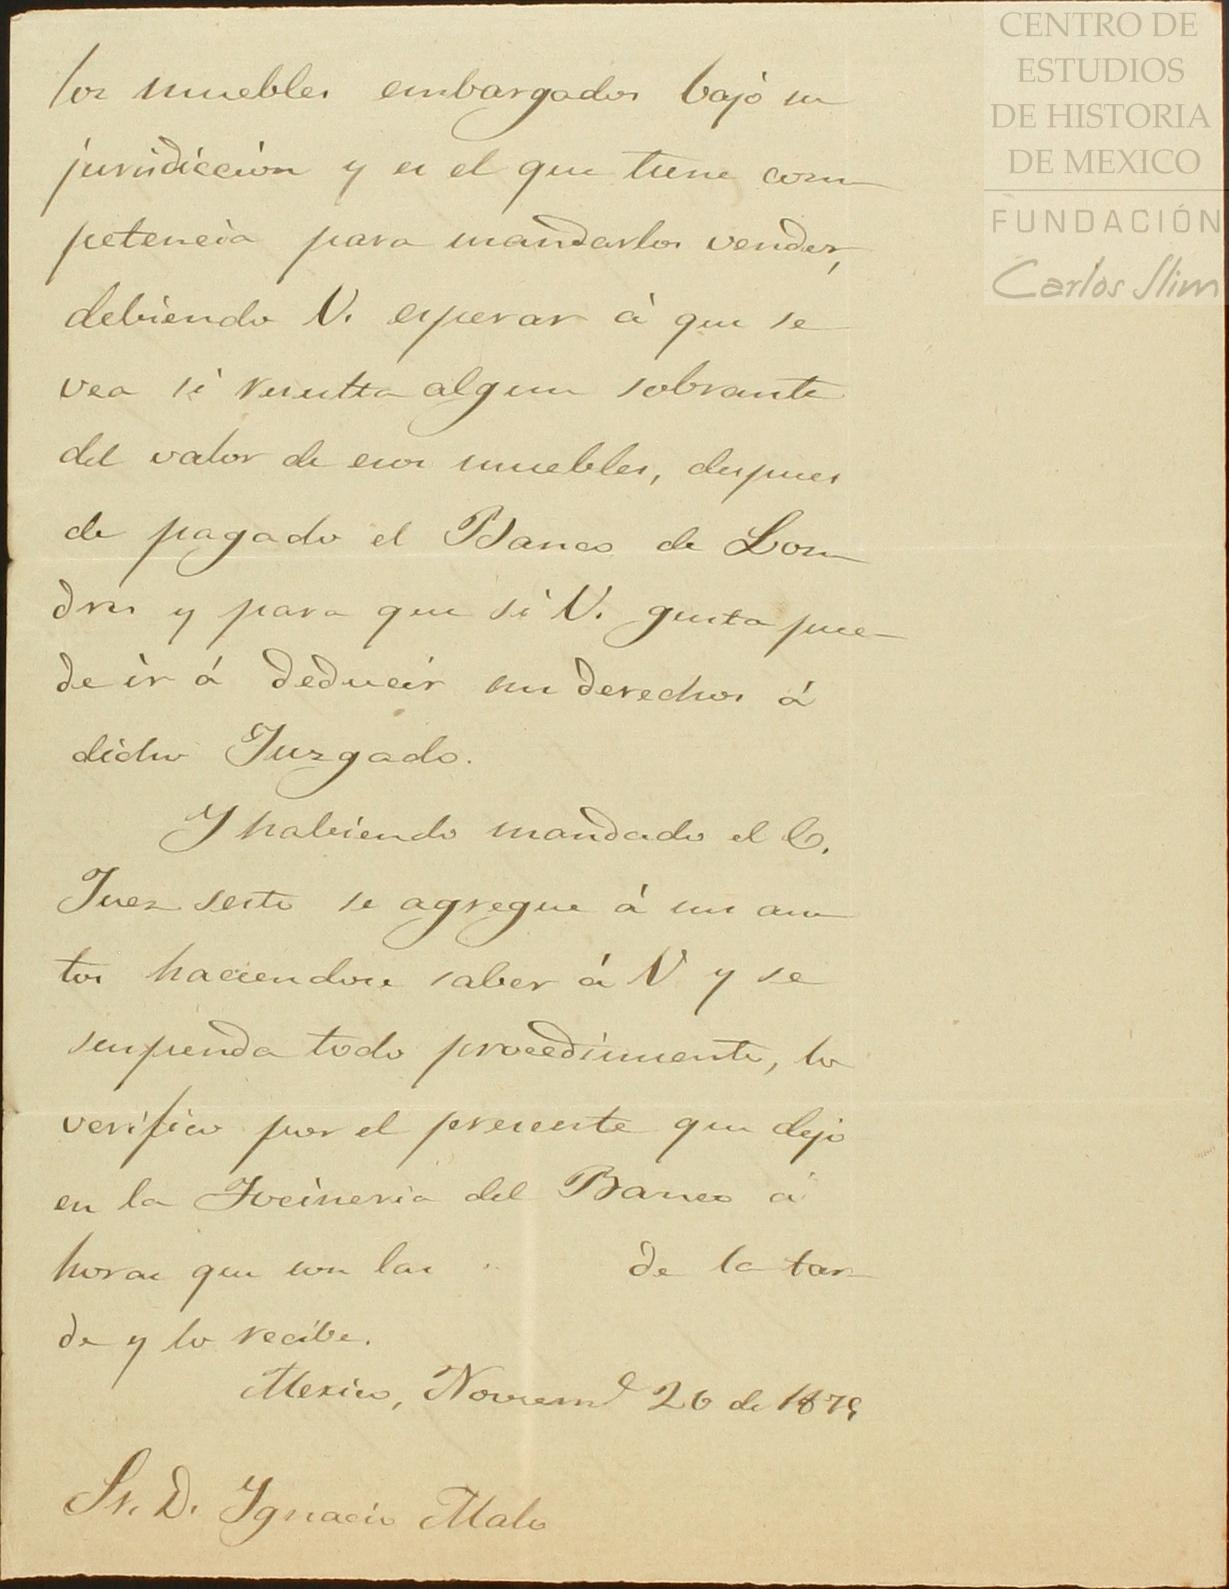 los muebles embargados bajo su
jurisdiccion y es el que tiene com
petencia para mandarlos vender,
debiendo V. esperar á que se
vea si resulta algun sobrante
del valor de esos muebles, despues
de pagado el Banco de Lon
dres y para que si V. gusta pue
de ir á deducir sus derechos á
dicho Juzgado.
Y habiendo mandado el C.
Juez sesto se agregue á sus au
tos haciendose saber á V y se
suspenda todo procedimiento, lo
verifico por el presente que dejo
en la Tocineria del Banco á
horas que son las de la tar
de y lo recibe.
Mexico, Noviem.e 26 de 1879
Sr. D. Ignacio Malo
CENTRO DE
ESTUDIOS
DE HISTORIA
DE MEXICO
FUNDACIÓN
Carlos Slim